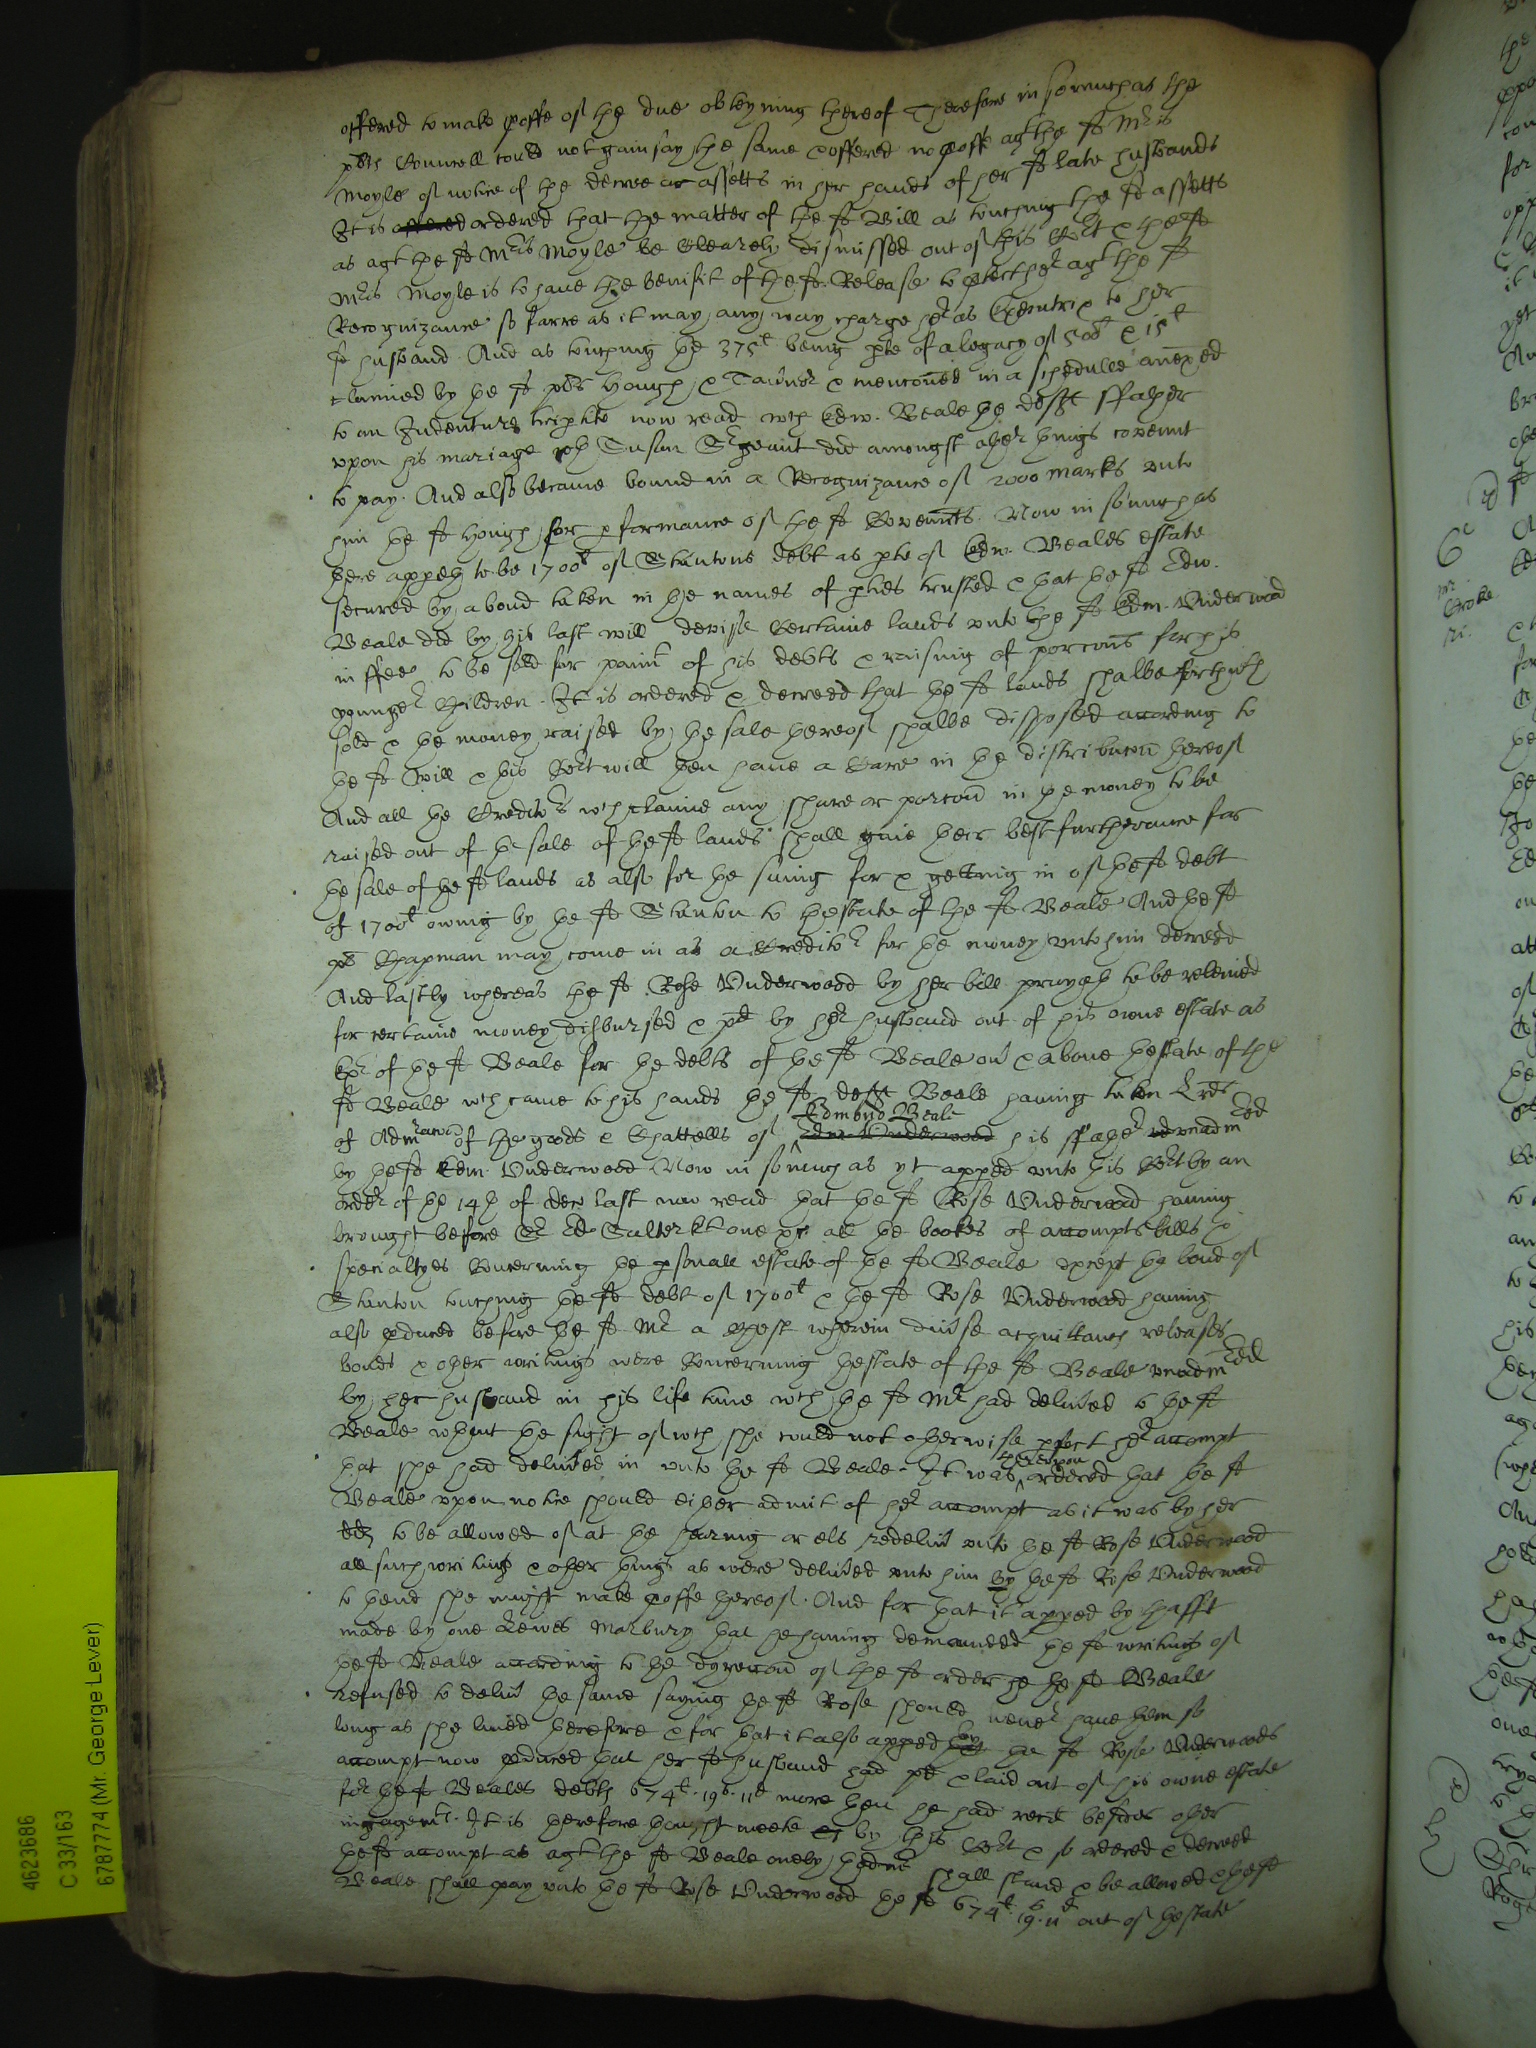 offered to make proffe of the due obteyning thereof Therefore in somuch as the
pltes Councell could not gainsay the same & offered no proffe agt the sd Mris
Moyle of notice of the decree or assetts in her hands of her sd late husbands
It is offered ordered that the matter of the sd Bill as touching the sd assetts
as agt the sd Mris Moyle be Clearely dismissed out of this Cort & the sd
Mris Moyle is to have the benifit of the sd Release to ptect her agt the sd
Recognizance so farre as it may any way charge her as Executrix to her
sd husband. And as touching the 375l being pte of a legacy of 500l & 15l
claimed by the sd plts Hough & & mentioned in a schedulle anexed
to an Indenture tripartite now read wch Edw. Beale the defts ffather
upon his mariage wth Susan did amongst other things covennt
to pay. And also became bound in a Recognizance of 2000 marks unto
him the sd Hough for pformance of the sd Covennts. Now in somuch as
there appeth to be 1700l of Stantons debt as pte of Edw. Beales estate
secured by a bond taken in the names of pties trusted & that the sd Edw.
Beale did by his last will devise Certaine lands unto the sd Edm. Underwood
in ffee to be sold for paimt of his debts & raising of porcons for his
younger Children. It is ordered & decreed that the sd lands shalbe forthwth
sold & the money raised by the sale thereof shalbe disposed according to
the sd Will & this Cort will then have a Care in the distribucon thereof
And all the Creditors wch claime any share or porcon in the money to be
raised out of the sale of the sd lands shall give their best furtherance for
the sale of the sd lands as also for the suing for & getting in of the sd debt
of 1700l owing by the sd Stanton to thestate of the sd Beale And the sd
plt Chapman may come in as a Creditor for the money unto him decreed
And lastly whereas the sd Rose Underwood by her bill prayeth to be releived
for certaine money disbursed & pd by her husband out of his owne estate as
Exr of the sd Beale for the debts of the sd Beale ovr & above thestate of the
sd Beale wch came to his hands the sd deft Beale having taken Lres
of Admracon of the goods & Chattells of Edm. Underwood Edmond Beale his ffather unadmred
by the sd Edm. Underwood Now in somuch as yt apped unto this Cort by an
order of the 14th of Decr last now read that the sd Rose Underwood having
brought before Sr Ed Salter Kt one &c all the bookes of accompts bills &
specialtyes Concerning the psonall estate of the sd Beale except the bond of
Stanton touching the sd debt of 1700l & the sd Rose Underwood having
also pduced before the sd Mr a Chest wherein divse acquittances releases
bonds & other writings were Concerning thestate of the sd Beale unadmred
by her husband in his life time wch the sd Mr had delived to the sd
Beale wthout the sight of wch she could not otherwise pfect her accompt
that she had delived in unto the sd Beale. It was thereupon ordered that the sd
Beale upon notice should either admit of her accompt as it was by her
to be allowed of at the hearing or els redeliv unto the sd Rose Underwood
all such writings & other things as were delived unto him by the sd Rose Underwood
to thend she might make proffe thereof. And for that it apped by thafft
made by one Lewes Marbury that he having demaunded the sd writings of
the sd Beale according to the dyreccon of the sd order he the sd Beale
refused to deliv the same saying the sd Rose should never have them so
long as she lived therefore & for that it also apped by the sd Rose Underwoods
accompt now pduced that her sd husband had pd & laid out of his owne estate
for the sd Beales debts 674l. 19s. 11d more then he had recd besides other
ingagemts. It is therefore thought meete by this Cort & so ordered & decreed
the sd accompt as agt the sd Beale onely shall stand & be allowed & the sd
Beale shall pay unto the sd Rose Underwood the sd 674l. 19s. 11d out of thestate
4623686
C 33/163
6787774 (Mr. George Lever)